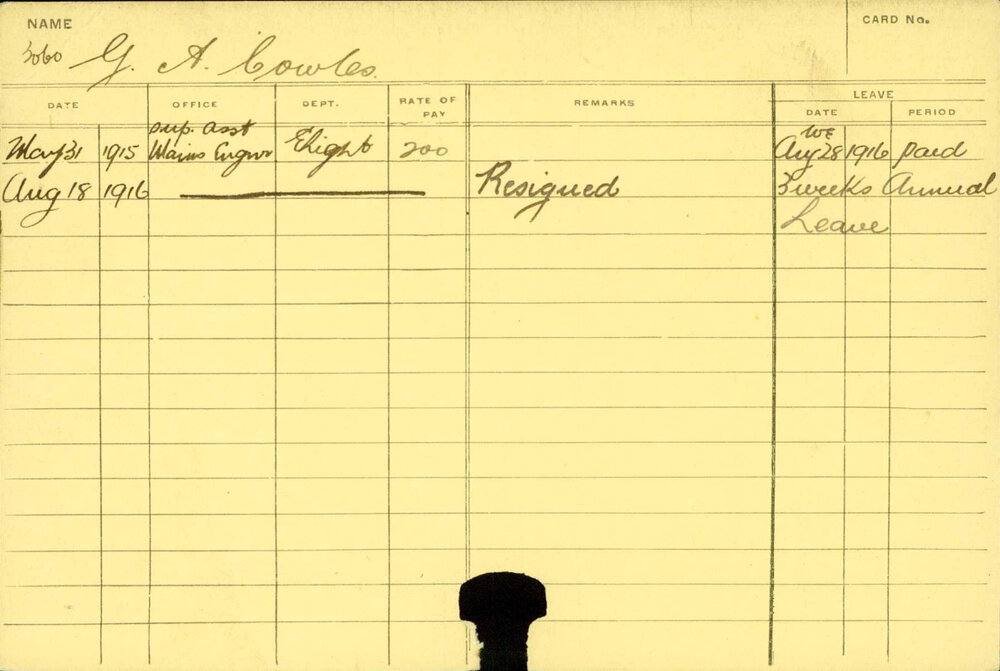 NAME
CARD No.
3060 G. A. Cowles
DATE OFFICE DEPT. RATE OF PAY REMARKS LEAVE
DATE PERIOD
Sup. Asst WE
May 31 1915 Mains Engnr Elight 200 Aug 28 1916 paid
Aug 18 1916 Resigned 3 weeks Annual
Leave